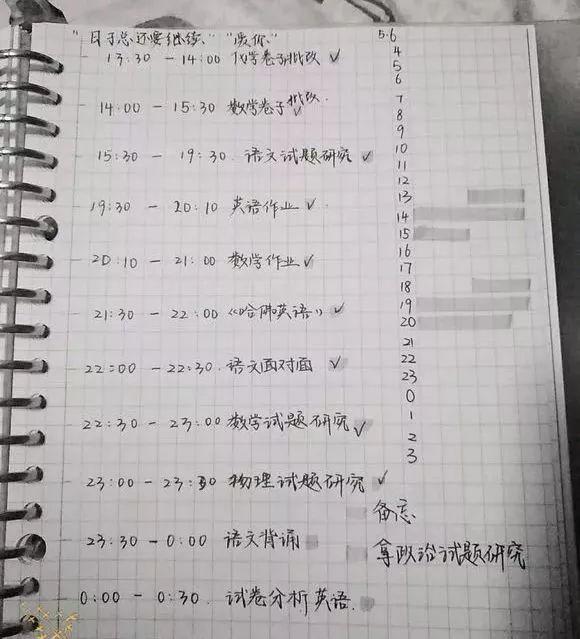 "日子总还要继续、"
5.6
13:30 - 14:00 化学卷子批改 ✓
14:00 - 15:30 数学卷子批改. ✓
15:30 - 19:30. 语文试题研究 ✓
19:30 - 20:10 英语作业 ✓
20:10 - 21:00 数学作业 ✓
21:30 - 22:00 《哈佛英语》 ✓
22:00 - 22:30. 语文面对面 ✓
22:30 - 23:00 数学试题研究 ✓
23:00 - 23:30 物理试题研究 ✓
23:30 - 0:00 语文背诵
0:00 - 0:30. 试卷分析英语.
4
5
6
7
8
9
10
11
12
13
14
15
16
17
18
19
20
21
22
23
0
1
2
3
备忘.
拿政治试题研究